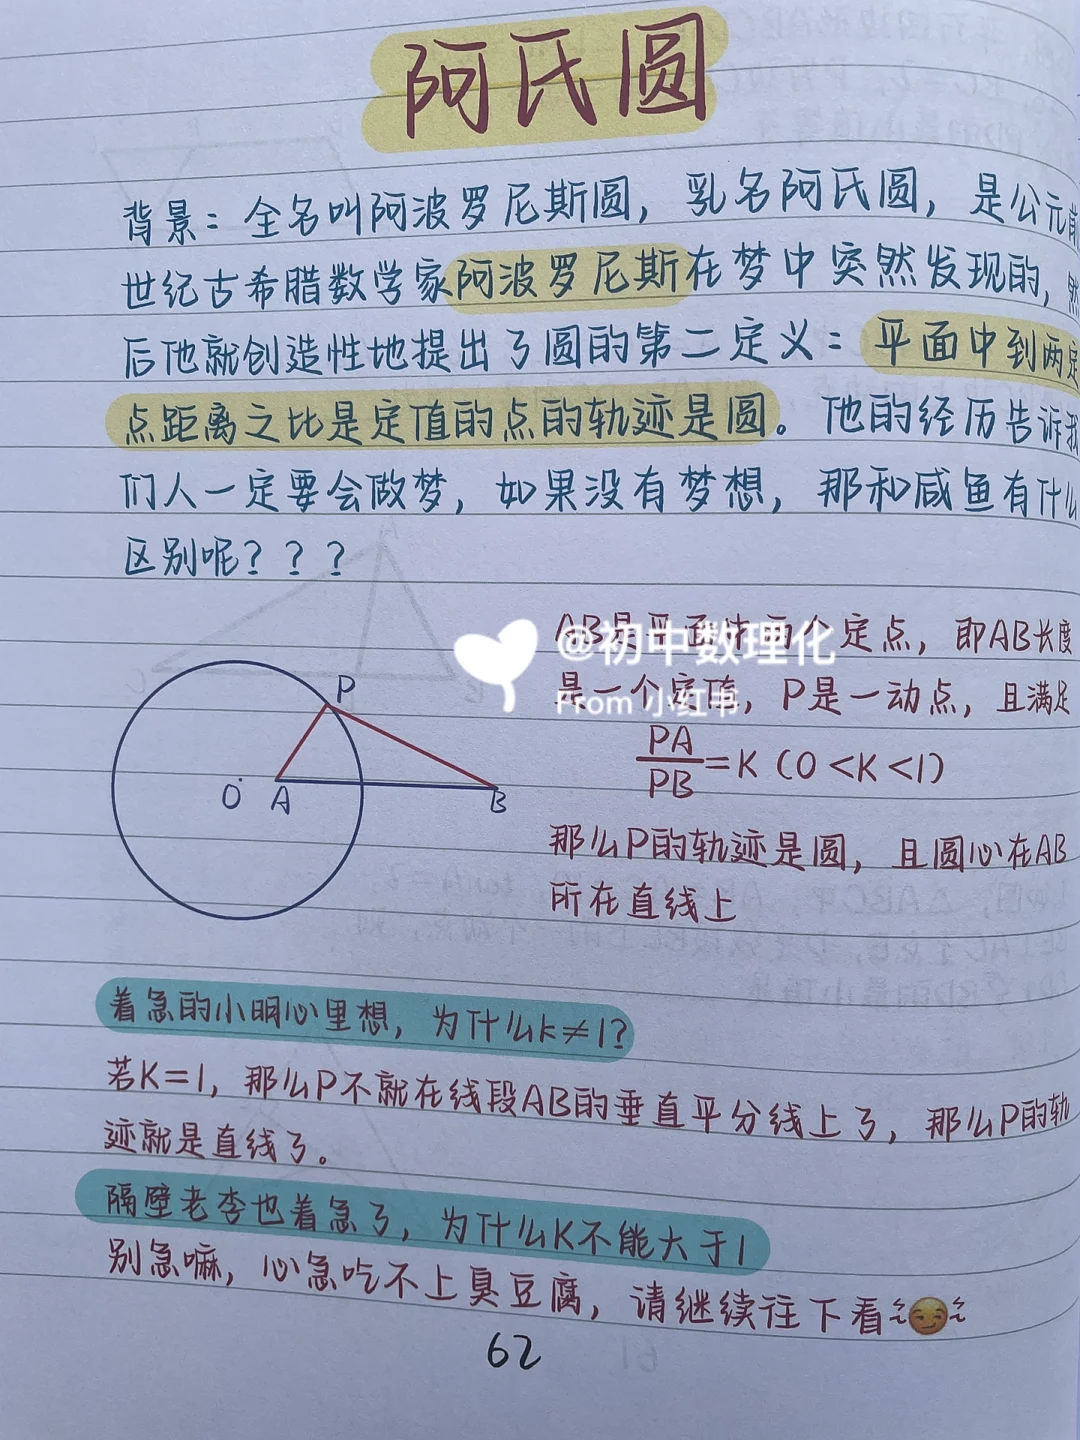 阿氏圆
背景：全名叫阿波罗尼斯圆，乳名阿氏圆，是公元前
世纪古希腊数学家阿波罗尼斯在梦中突然发现的，然
后他就创造性地提出了圆的第二定义：平面中到两定
点距离之比是定值的点的轨迹是圆。他的经历告诉我
们人一定要会做梦，如果没有梦想，那和咸鱼有什么
区别呢？？？
AB是平面中两个定点，即AB长度
@初中数理化
是一个定值，P是一动点，且满足
From 小红书
PA/PB=K（0<K<1）
P
O A B
那么P的轨迹是圆，且圆心在AB
所在直线上
着急的小明心里想，为什么k≠1？
若K=1，那么P不就在线段AB的垂直平分线上了，那么P的轨
迹就是直线了。
隔壁老李也着急了，为什么K不能大于1
别急嘛，心急吃不上臭豆腐，请继续往下看
62